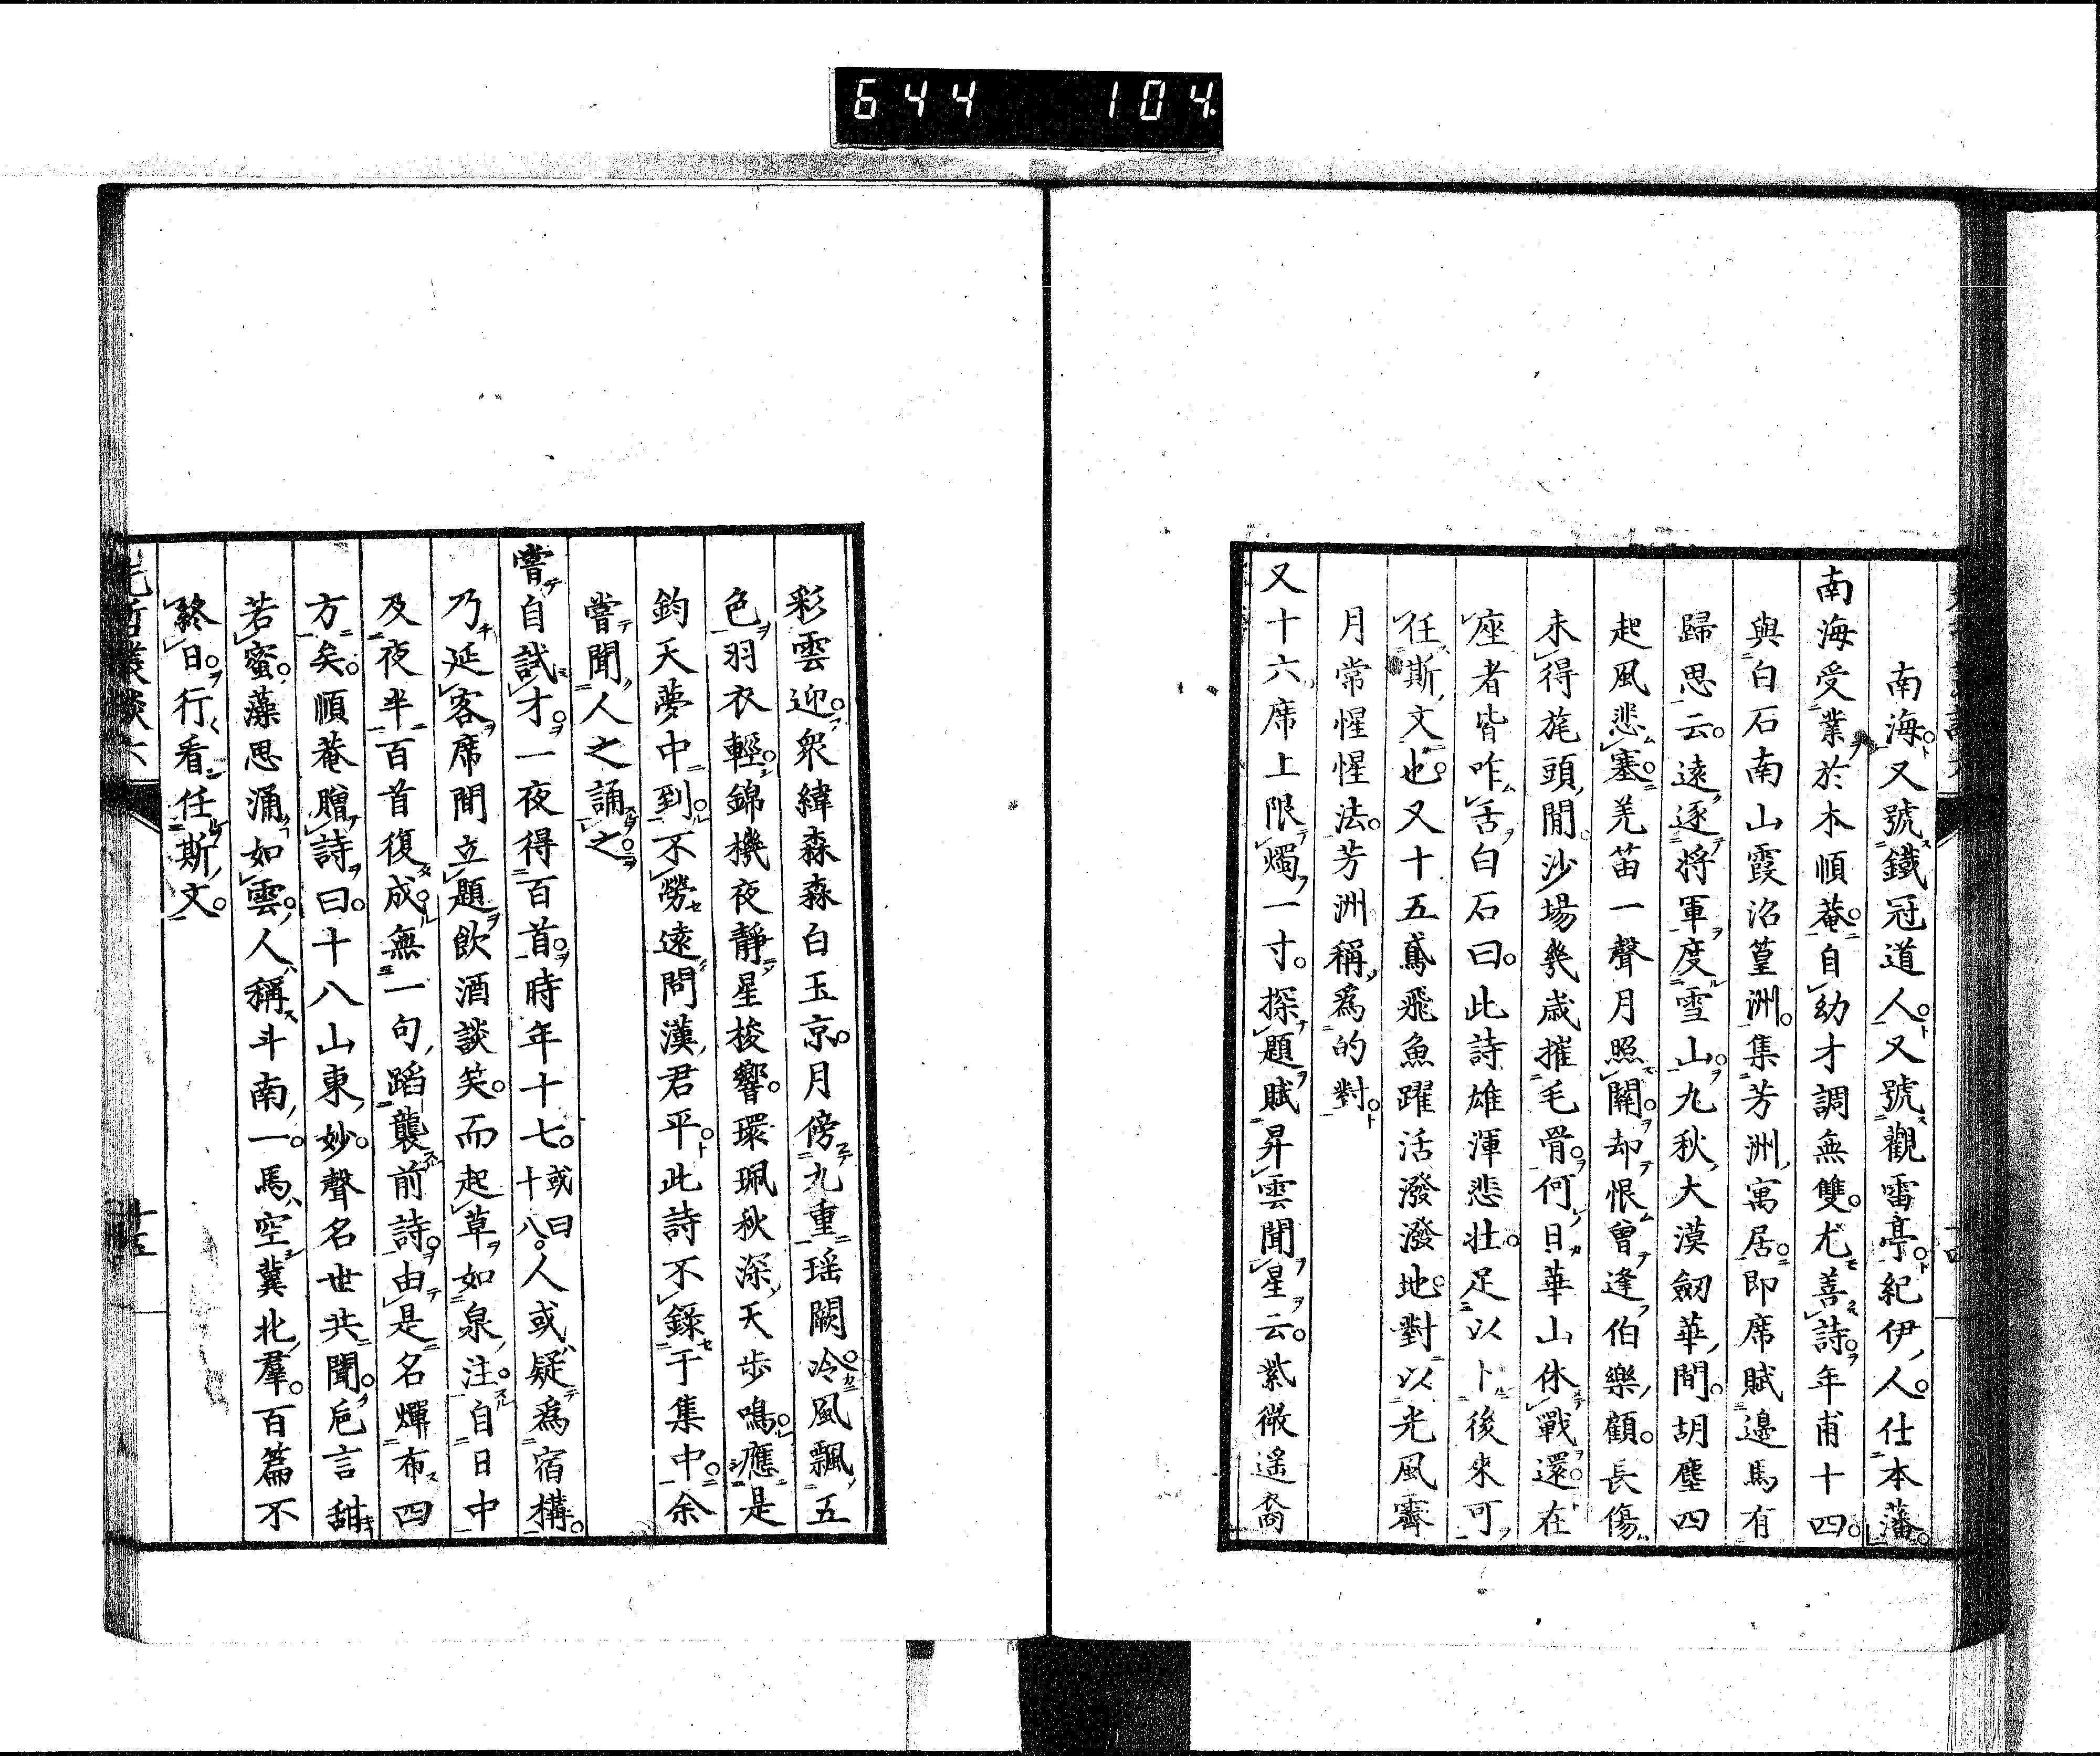 644 104
南海又號鐵冠道人又號觀雷亭紀伊人仕本藩
南海受業於木順菴自幼才調無雙尤善詩年甫十四
與白石南山霞沼篁洲集芳洲寓居即席賦邊馬有
歸思云遠逐將軍度雪山九秋大漠劒華間胡塵四
起風悲塞羌笛一聲月照關却恨曾逢伯樂顧長傷
未得旄頭閒沙場幾歳摧毛骨何日華山休戰還在
座者皆咋舌白石曰此詩雄渾悲壯足以卜後來可
任斯文也又十五鳶飛魚躍活潑潑地對以光風霽
月常惺惺法芳洲稱爲的對
又十六席上限燭一寸探題賦昇雲聞星云紫微遙裔
彩雲迎衆緯森森白玉京月傍九重瑶闕冷風飄五
色羽衣輕錦機夜靜星梭響環珮秋深天歩鳴應是
鈞天夢中到不勞遠問漢君平此詩不錄于集中余
嘗聞人之誦之
嘗自試才一夜得百首時年十七或曰十八人或疑爲宿構
乃延客席間立題飲酒談笑而起草如泉注自日中
及夜半百首復成無一句蹈襲前詩由是名燀布四
方矣順菴贈詩曰十八山東妙聲名世共聞巵言甜
若蜜藻思涌如雲人稱斗南一馬空冀北羣百篇不
終日行看任斯文
先哲叢談六
十五